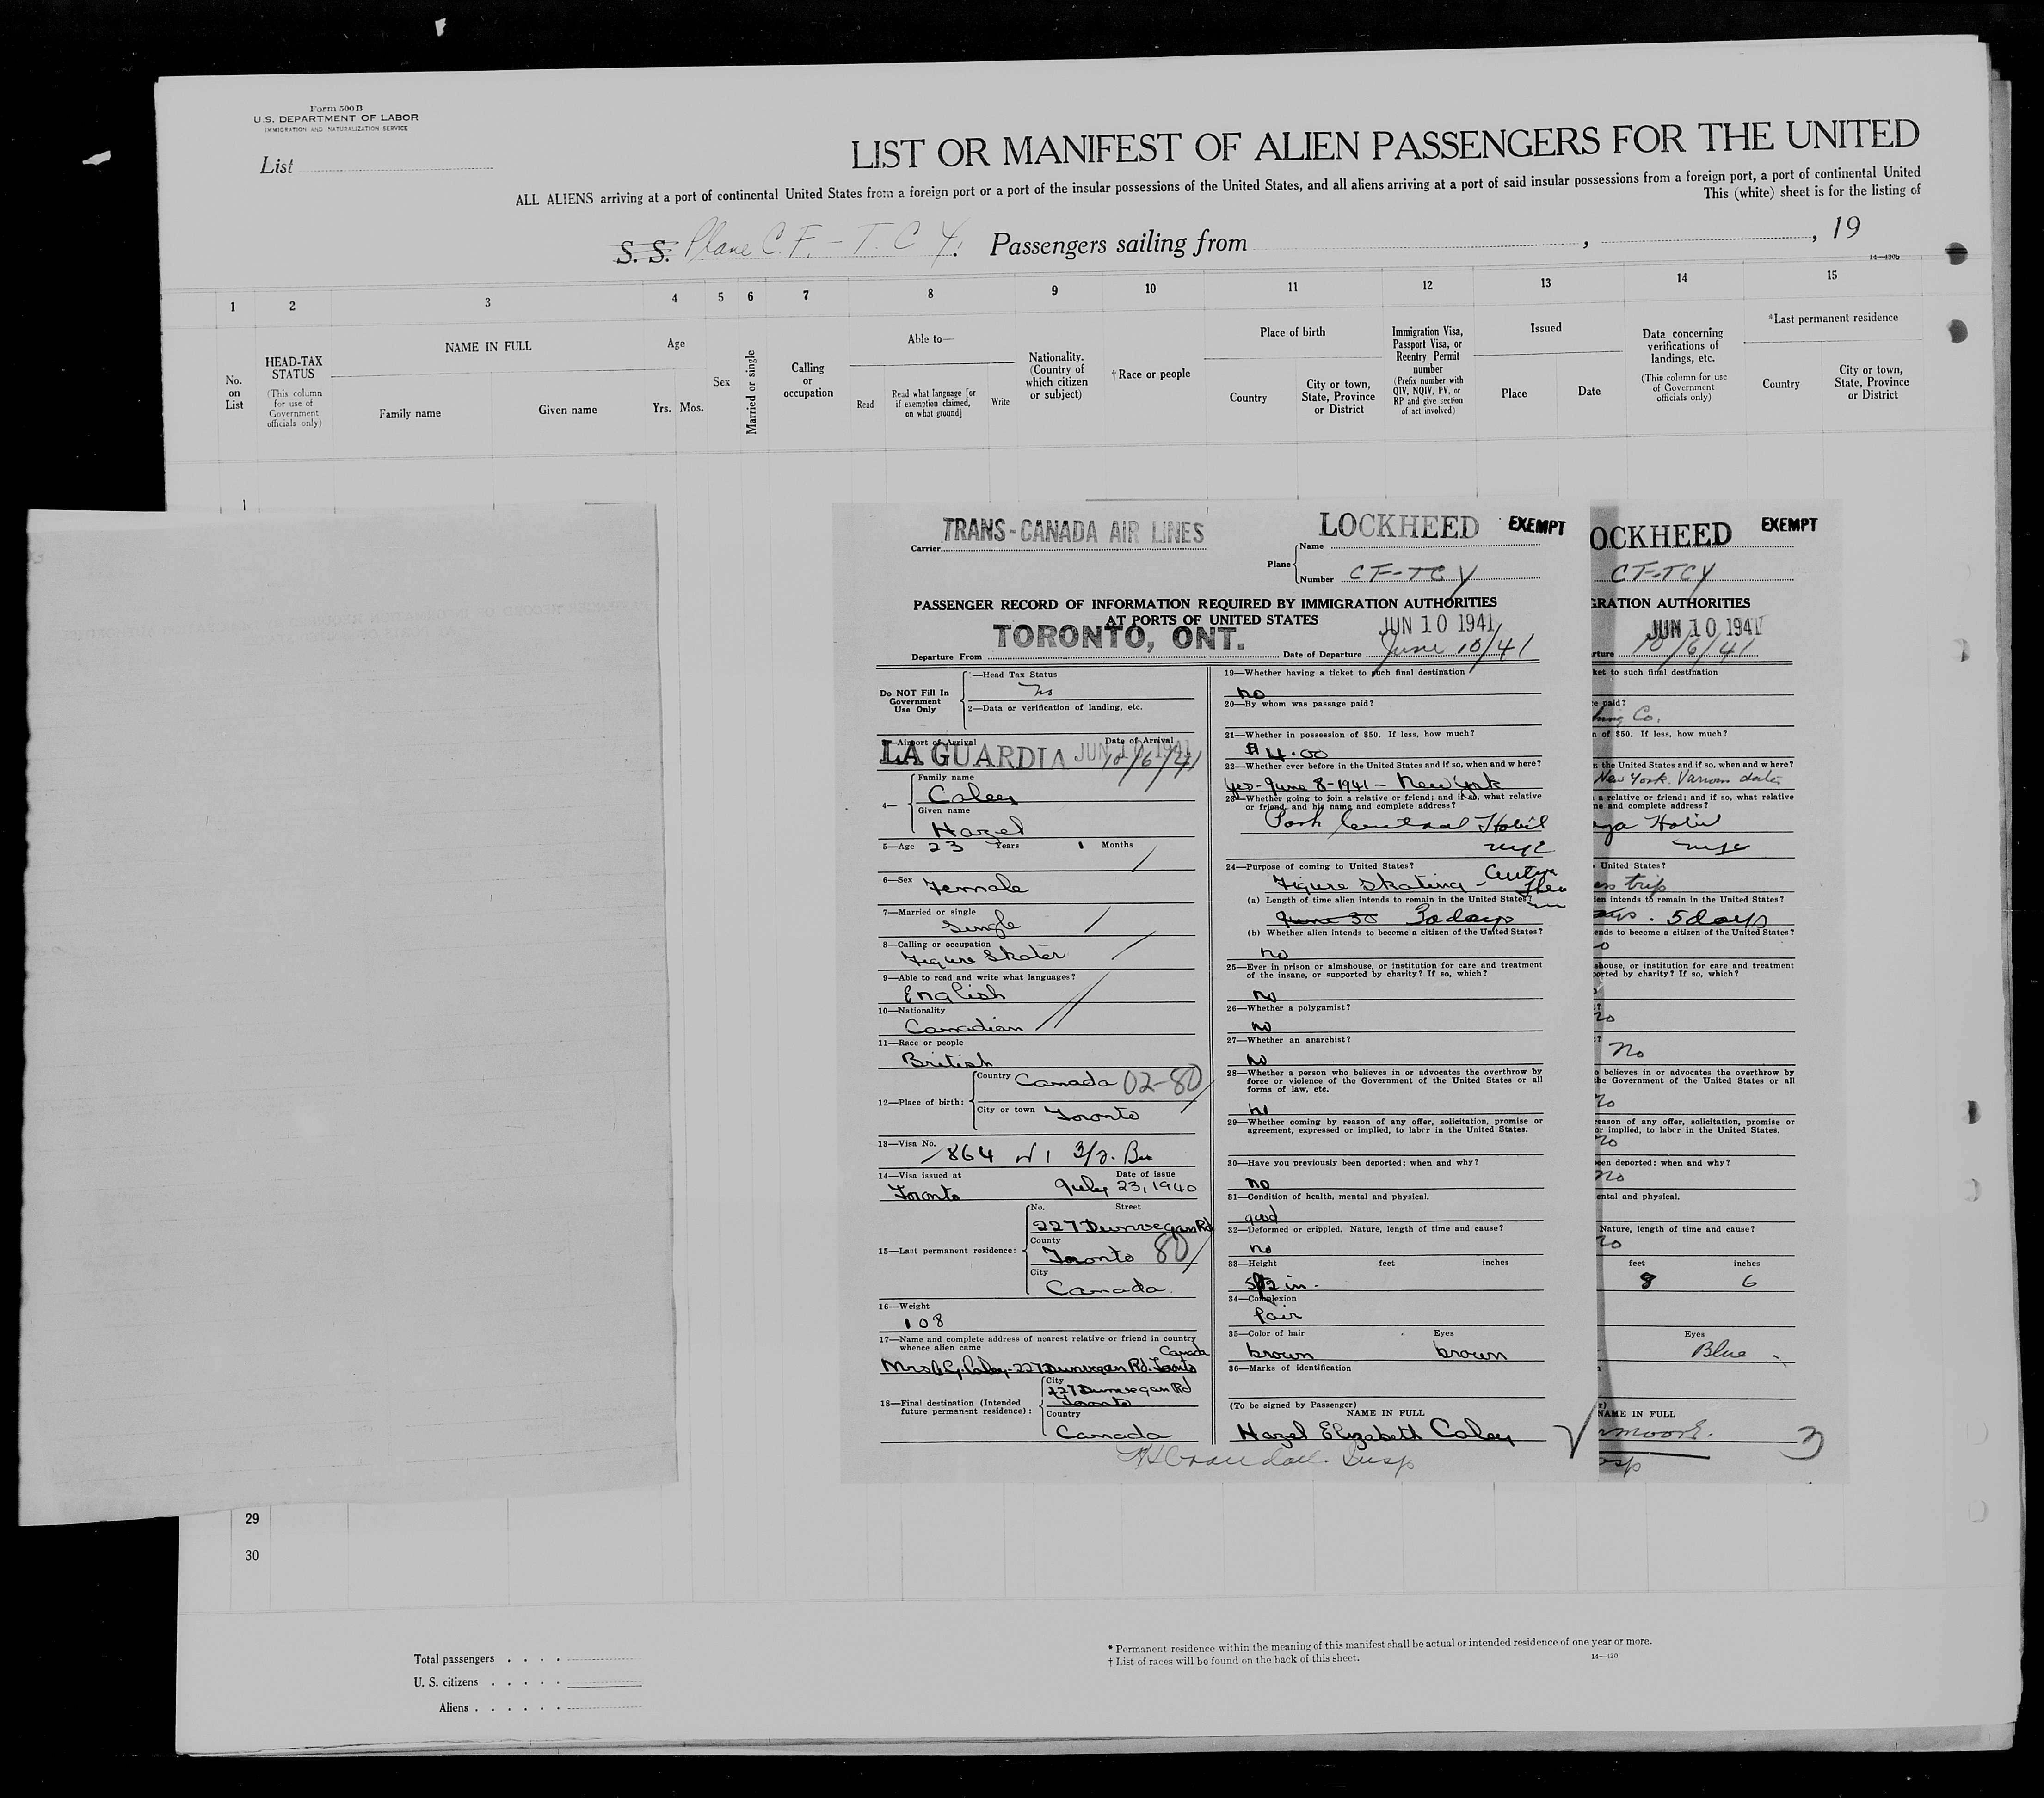 Form 500 B
U.S. DEPARTMENT OF LABOR
IMMIGRATION AND NATURALIZATION SERVICE
List
LIST OR MANIFEST OF ALIEN PASSENGERS FOR THE UNITED
ALL ALIENS arriving at a port of continental United States from a foreign port or a port of the insular possessions of the United States, and all aliens arriving at a port of said insular possessions from a foreign port, a port of continental United
This (white) sheet is for the listing of
S. S. Plane C. F. - T. C Y. Passengers sailing from , , 19
14—430b
1 2 3 4 5 6 7 8 9 10 11 12 13 14 15
No. on List
HEAD-TAX STATUS
(This column for use of Government officials only)
NAME IN FULL
Family name
Given name
Age
Yrs. Mos.
Sex
Married or single
Calling or occupation
Able to—
Read
Read what language [or if exemption claimed, on what ground]
Write
Nationality. (Country of which citizen or subject)
†Race or people
Place of birth
Country
City or town, State, Province or District
Immigration Visa, Passport Visa, or Reentry Permit number
(Prefix number with QIV, NQIV, PV, or RP and give section of act involved)
Issued
Place
Date
Data concerning verifications of landings, etc.
(This column for use of Government officials only)
*Last permanent residence
Country
City or town, State, Province or District
1
Carrier TRANS-CANADA AIR LINES
Plane
Name LOCKHEED EXEMPT
Number CF-TCY
PASSENGER RECORD OF INFORMATION REQUIRED BY IMMIGRATION AUTHORITIES
AT PORTS OF UNITED STATES
JUN 10 1941
Departure From TORONTO, ONT. Date of Departure June 10/41
Do NOT Fill In Government Use Only
—Head Tax Status
no
2—Data or verification of landing, etc.
—Airport of Arrival Date of Arrival
LA GUARDIA JUN 10 1941 10/6/41
4—
Family name
Caley
Given name
Hazel
5—Age 23 Years 1 Months
6—Sex Female
7—Married or single
Single
8—Calling or occupation
Figure Skater
9—Able to read and write what languages?
English
10—Nationality
Canadian
11—Race or people
British
12—Place of birth:
Country Canada 02-80
City or town Toronto
13—Visa No.
864 3/2.
14—Visa issued at Date of issue
Toronto July 23, 1940
15—Last permanent residence:
No. Street
227 Dunvegan Rd
County
Toronto 80
City
Canada.
16—Weight
108
17—Name and complete address of nearest relative or friend in country
whence alien came
Canada
Caley - 227 Dunvegan Rd. Toronto
18—Final destination (Intended
future permanent residence):
City
227 Dunvegan Rd
Toronto
Country
Canada
19—Whether having a ticket to such final destination
no
20—By whom was passage paid?
21—Whether in possession of $50. If less, how much?
$4.00
22—Whether ever before in the United States and if so, when and where?
yes - June 8-1941 - New York
23—Whether going to join a relative or friend; and if so, what relative
or friend, and his name and complete address?
Park Central Hotel
nyc
24—Purpose of coming to United States?
Figure Skating - Center
(a) Length of time alien intends to remain in the United States?
June 30 30 days
(b) Whether alien intends to become a citizen of the United States?
no
25—Ever in prison or almshouse, or institution for care and treatment
of the insane, or supported by charity? If so, which?
no
26—Whether a polygamist?
no
27—Whether an anarchist?
no
28—Whether a person who believes in or advocates the overthrow by
force or violence of the Government of the United States or all
forms of law, etc.
no
29—Whether coming by reason of any offer, solicitation, promise or
agreement, expressed or implied, to labor in the United States.
30—Have you previously been deported; when and why?
no
31—Condition of health, mental and physical.
good
32—Deformed or crippled. Nature, length of time and cause?
no
33—Height feet inches
2 in.
34—Complexion
fair
35—Color of hair Eyes
brown brown
36—Marks of identification
(To be signed by Passenger)
NAME IN FULL
Hazel Elizabeth Caley
Insp
OCKHEED EXEMPT
CF-TCY
GRATION AUTHORITIES
JUN 10 1941
rture 10/6/41
ket to such final destination
e paid?
Co.
n of $50. If less, how much?
n the United States and if so, when and where?
New York. Various dates
a relative or friend; and if so, what relative
ne and complete address?
Hotel
nyc
United States?
trip
ien intends to remain in the United States?
5 days
ends to become a citizen of the United States?
shouse, or institution for care and treatment
ported by charity? If so, which?
no
No
o believes in or advocates the overthrow by
the Government of the United States or all
no
reason of any offer, solicitation, promise or
or implied, to labor in the United States.
no
een deported; when and why?
no
ental and physical.
Nature, length of time and cause?
no
feet inches
8 6
Eyes
Blue -
NAME IN FULL
3
29
30
Total passengers
U. S. citizens
Aliens
* Permanent residence within the meaning of this manifest shall be actual or intended residence of one year or more.
† List of races will be found on the back of this sheet.
14—420